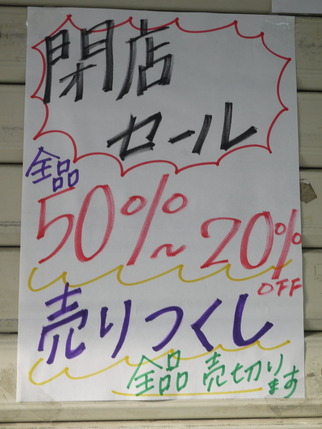 閉店
セール
全品
50%~20%
OFF
売りつくし
全品 売切り
ます